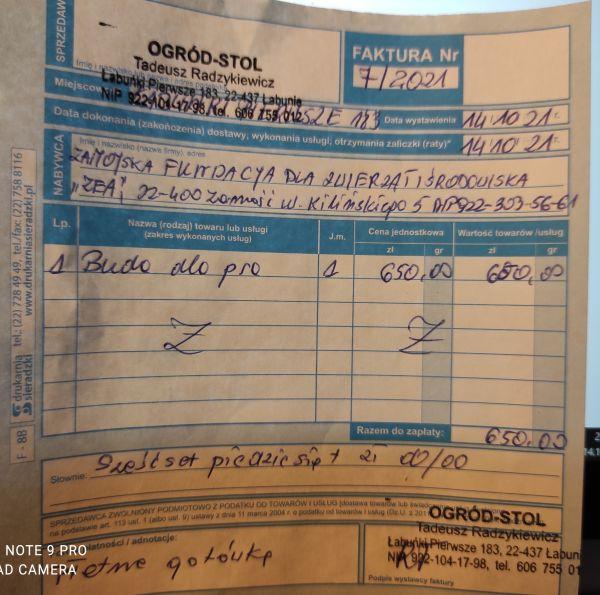 SPRZEDAWCA
OGRÓD-STOL
Tadeusz Radzykiewicz
Łabuńki Pierwsze 183, 22-437 Łabunie
NIP 922-104-17-98, tel. 606 755 012
FAKTURA Nr
7/2021
Miejscow
183
Data wystawienia 14.10.21
Data dokonania (zakończenia) dostawy; wykonania usługi; otrzymania zaliczki (raty)* 14.10.21
NABYWCA
Imię i nazwisko (nazwa firmy), adres
ZAMOJSKA FUNDACJA DLA ZWIERZĄT I ŚRODOWISKA
"ZEA", 22-400 Zamość ul. Kilińskiego 5 NIP 922-303-56-61
Lp. Nazwa (rodzaj) towaru lub usługi (zakres wykonanych usług) J.m. Cena jednostkowa Wartość towarów /usług
zł gr zł gr
1 Buda dla psa 1 650,00 650,00
Z Z
Razem do zapłaty: 650,00
Słownie: Sześćset pięćdziesiąt zł 00/00
SPRZEDAWCA ZWOLNIONY PODMIOTOWO Z PODATKU OD TOWARÓW I USŁUG (dostawa towarów lub świadcz
na podstawie art. 113 ust. 1 (albo ust. 9) ustawy z dnia 11 marca 2004 r. o podatku od towarów i usług (Dz.U. z 201
płatności / adnotacje:
gotówką
OGRÓD-STOL
Tadeusz Radzykiewicz
Łabuńki Pierwsze 183, 22-437 Łabun
NIP 922-104-17-98, tel. 606 755 01
Podpis wystawcy faktury
F - 8B
drukarnia sieradzki
tel.: (22) 728 49 49, tel./fax: (22) 758 8116
www.drukarniasieradzki.pl
NOTE 9 PRO
AD CAMERA